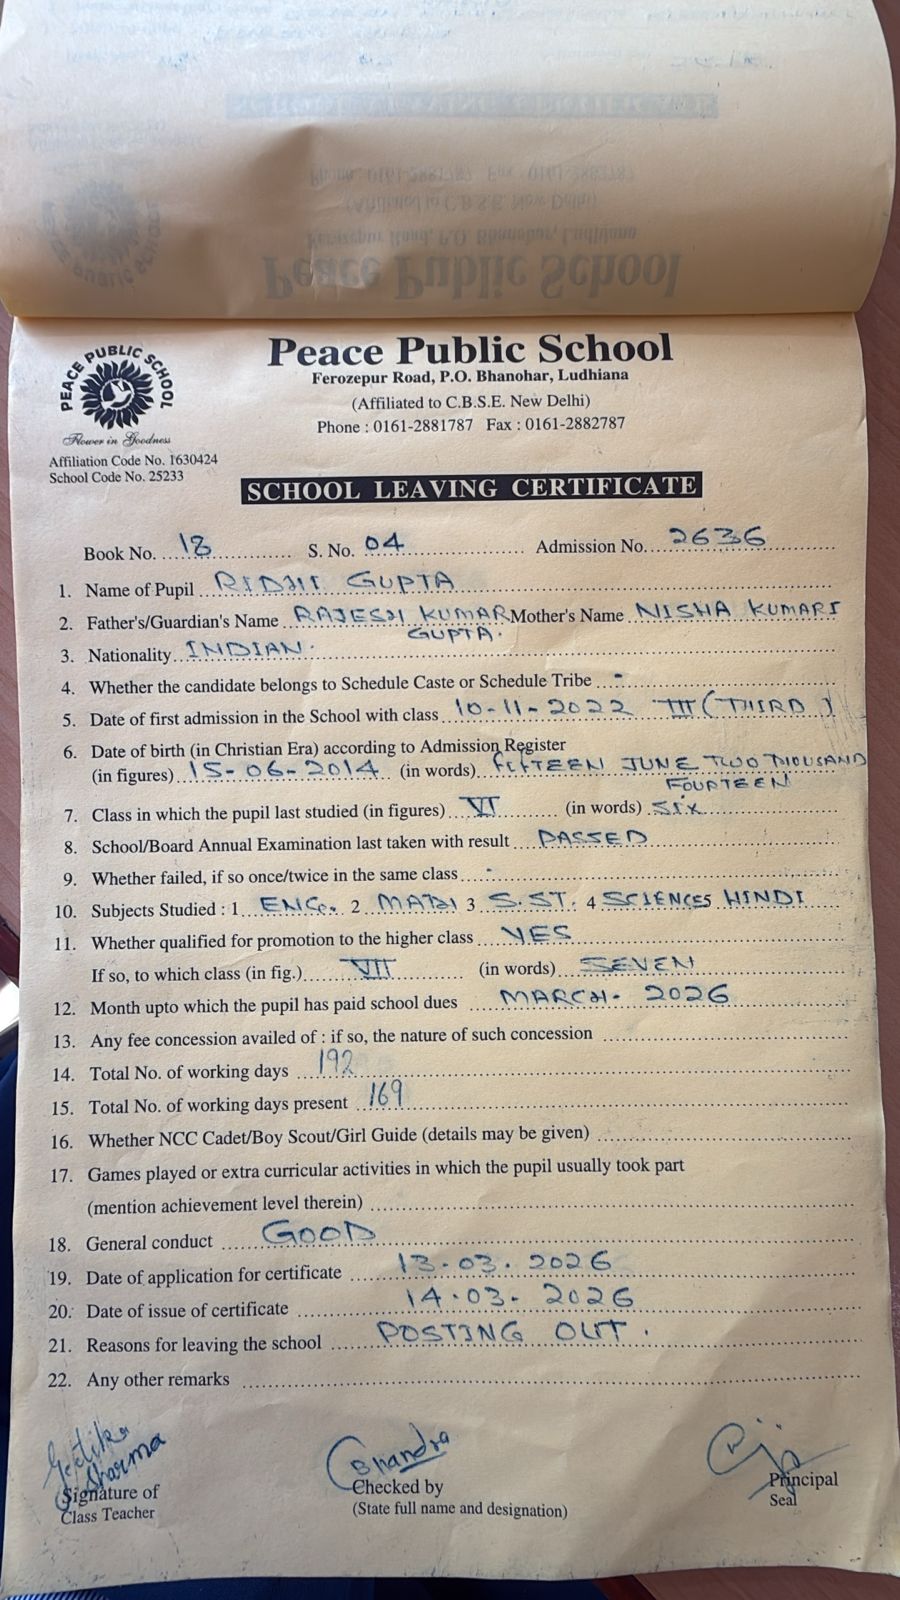 Peace Public School
Ferozepur Road, P.O. Bhanohar, Ludhiana
(Affiliated to C.B.S.E. New Delhi)
Phone : 0161-2881787 Fax : 0161-2882787
PEACE PUBLIC SCHOOL
Flower in Goodness
Affiliation Code No. 1630424
School Code No. 25233
SCHOOL LEAVING CERTIFICATE
Book No. 18 S. No. 04 Admission No. 2636
1. Name of Pupil RIDHI GUPTA
2. Father's/Guardian's Name RAJESH KUMAR Mother's Name NISHA KUMARI
GUPTA.
3. Nationality INDIAN.
4. Whether the candidate belongs to Schedule Caste or Schedule Tribe -
5. Date of first admission in the School with class 10-11-2022 III (THIRD)
6. Date of birth (in Christian Era) according to Admission Register
(in figures) 15-06-2014 (in words) FIFTEEN JUNE TWO THOUSAND
FOURTEEN
7. Class in which the pupil last studied (in figures) VI (in words) SIX
8. School/Board Annual Examination last taken with result PASSED
9. Whether failed, if so once/twice in the same class -
10. Subjects Studied : 1 ENG. 2 MATH 3 S.ST. 4 SCIENCE 5 HINDI
11. Whether qualified for promotion to the higher class YES
If so, to which class (in fig.) VII (in words) SEVEN
12. Month upto which the pupil has paid school dues MARCH- 2026
13. Any fee concession availed of : if so, the nature of such concession
14. Total No. of working days 192
15. Total No. of working days present 169
16. Whether NCC Cadet/Boy Scout/Girl Guide (details may be given)
17. Games played or extra curricular activities in which the pupil usually took part
(mention achievement level therein)
18. General conduct GOOD
19. Date of application for certificate 13.03.2026
20. Date of issue of certificate 14.03.2026
21. Reasons for leaving the school POSTING OUT.
22. Any other remarks
Geetika
Sharma
Chandra
Signature of
Class Teacher
Checked by
(State full name and designation)
Principal
Seal